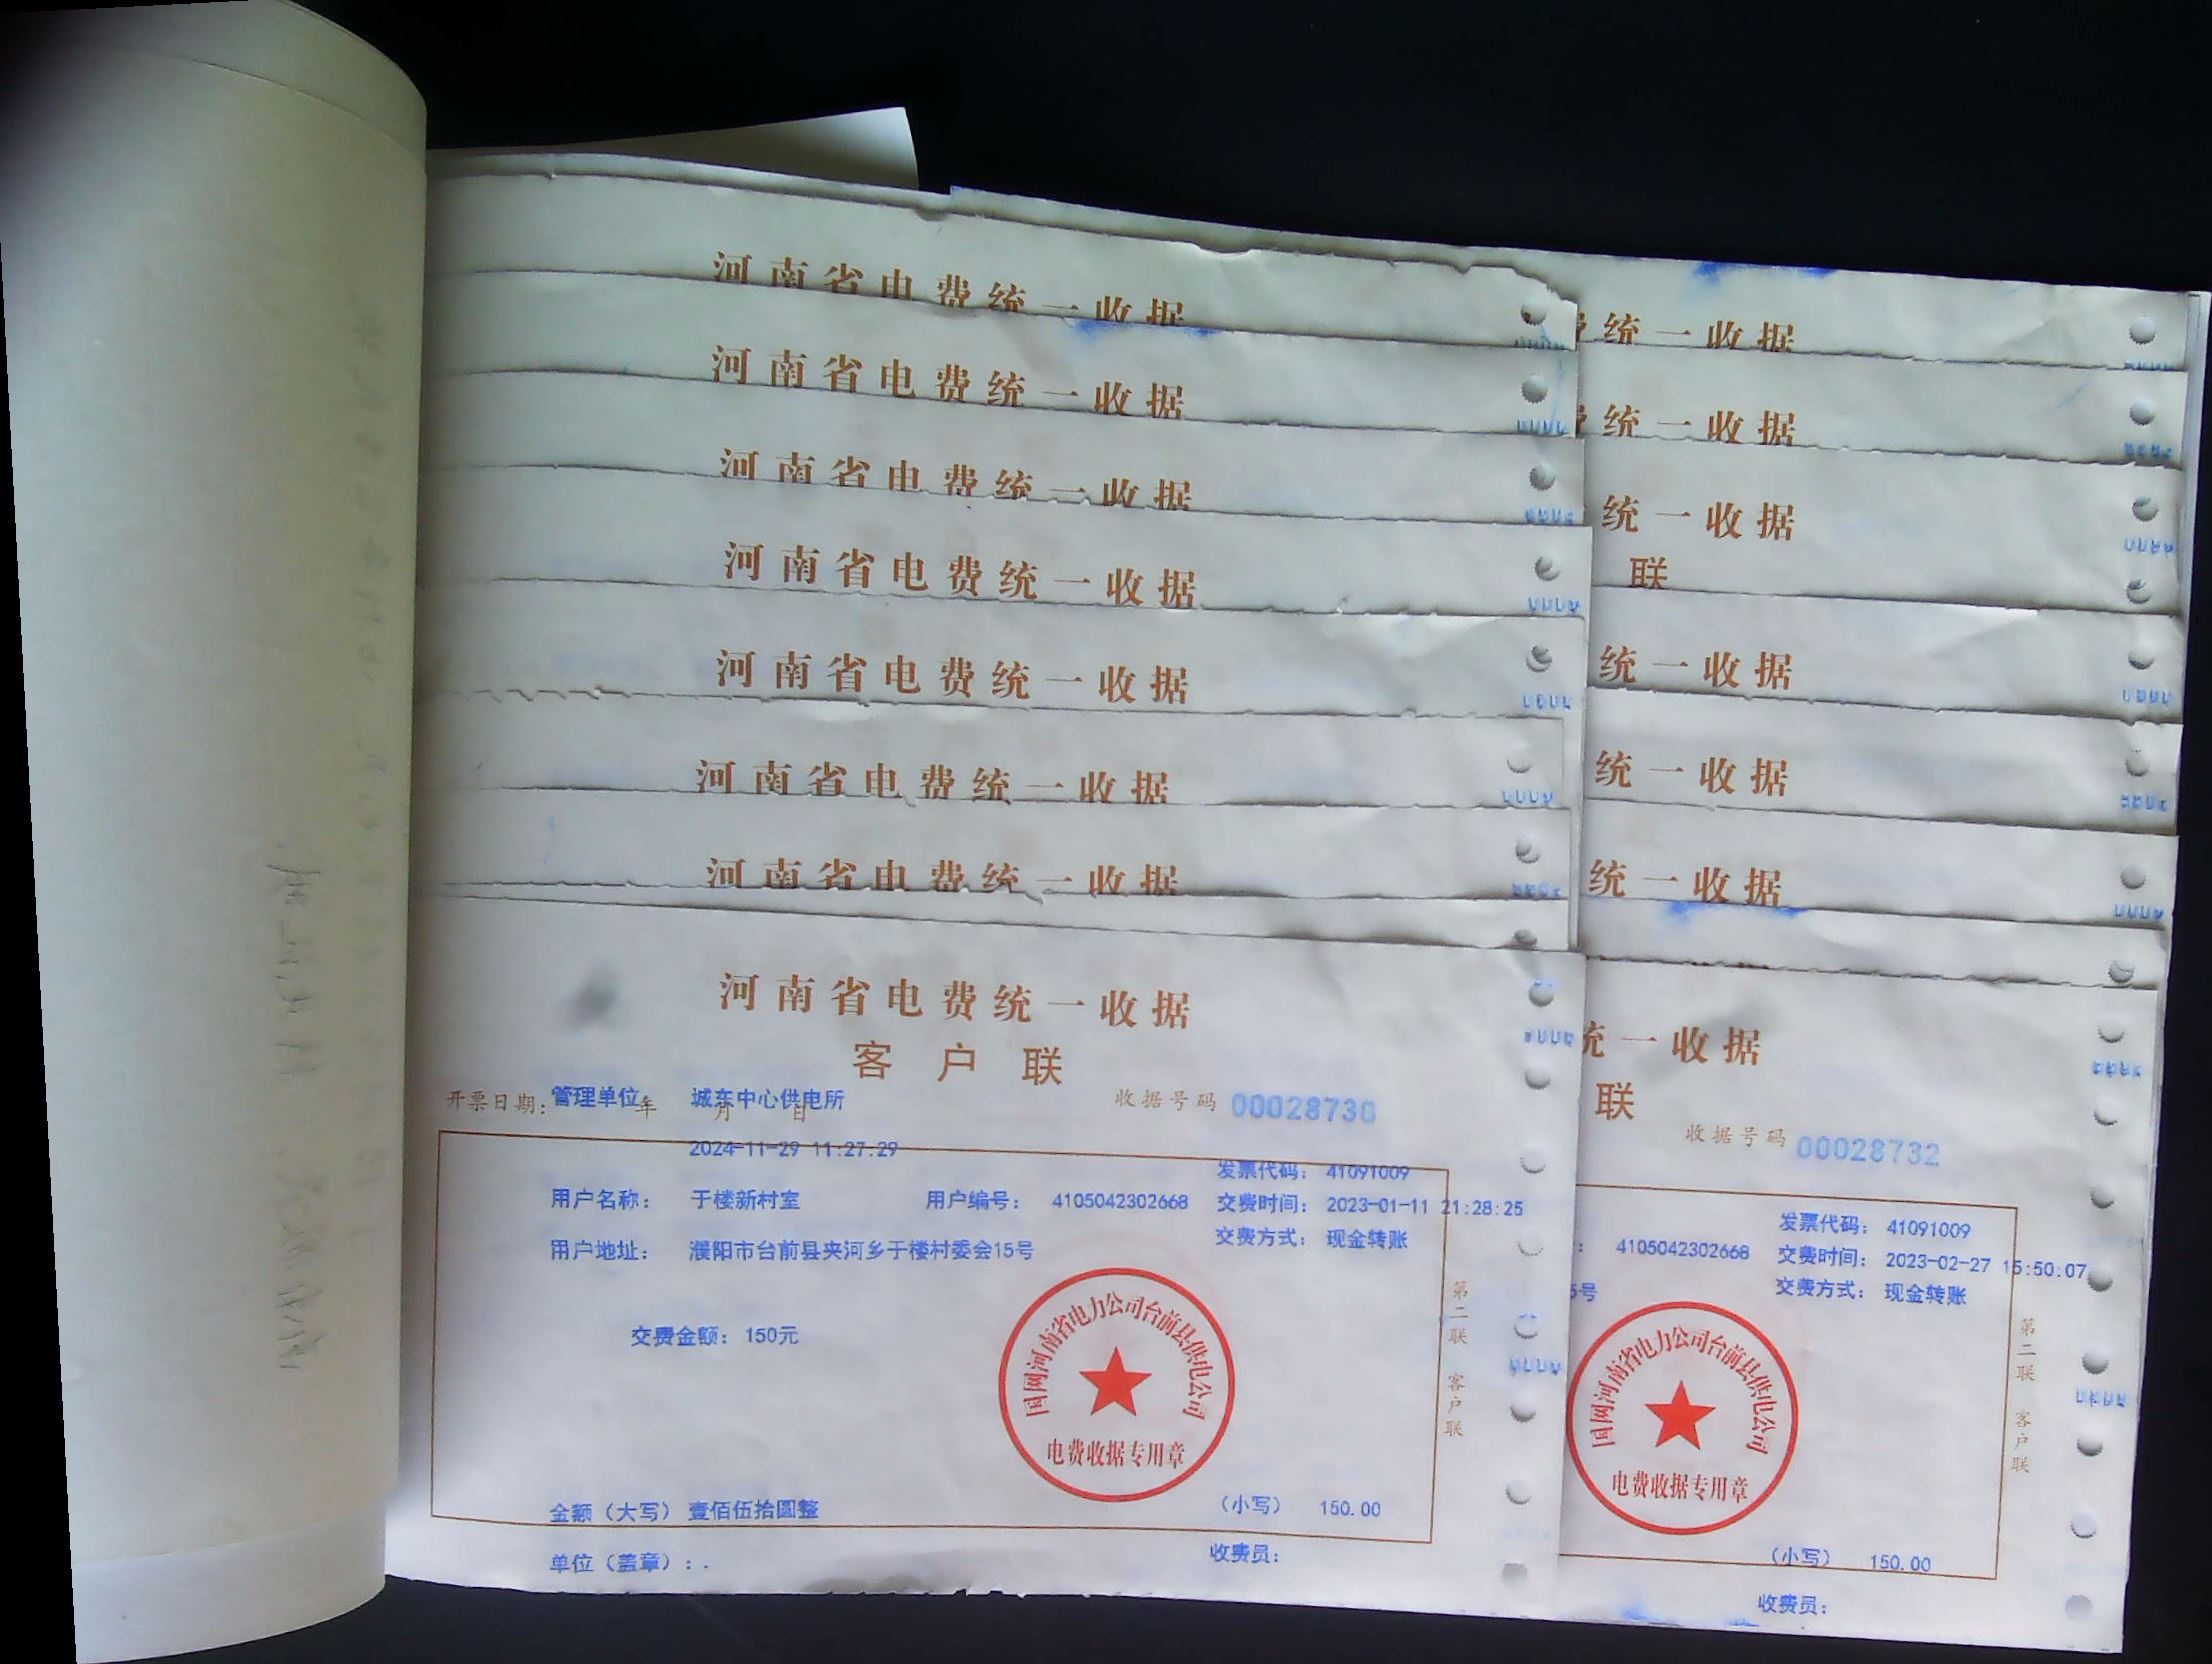 河南省电费统一收据
河南省电费统一收据
河南省电费统一收据
河南省电费统一收据
河南省电费统一收据
河南省电费统一收据
河南省电费统一收据
河南省电费统一收据
客户联
开票日期: 年 月 日
管理单位 城东中心供电所
收据号码 00028730
2024-11-29 11:27:29
发票代码: 41091009
用户名称: 于楼新村室 用户编号: 4105042302668 交费时间: 2023-01-11 21:28:25
用户地址: 濮阳市台前县夹河乡于楼村委会15号 交费方式: 现金转账
交费金额: 150元
国网河南省电力公司台前县供电公司
电费收据专用章
第二联 客户联
金额（大写） 壹佰伍拾圆整 （小写） 150.00
单位（盖章）:. 收费员:
统一收据
统一收据
统一收据
联
统一收据
统一收据
统一收据
统一收据
联
收据号码 00028732
发票代码: 41091009
: 4105042302668 交费时间: 2023-02-27 15:50:07
5号 交费方式: 现金转账
国网河南省电力公司台前县供电公司
电费收据专用章
第二联 客户联
（小写） 150.00
收费员: